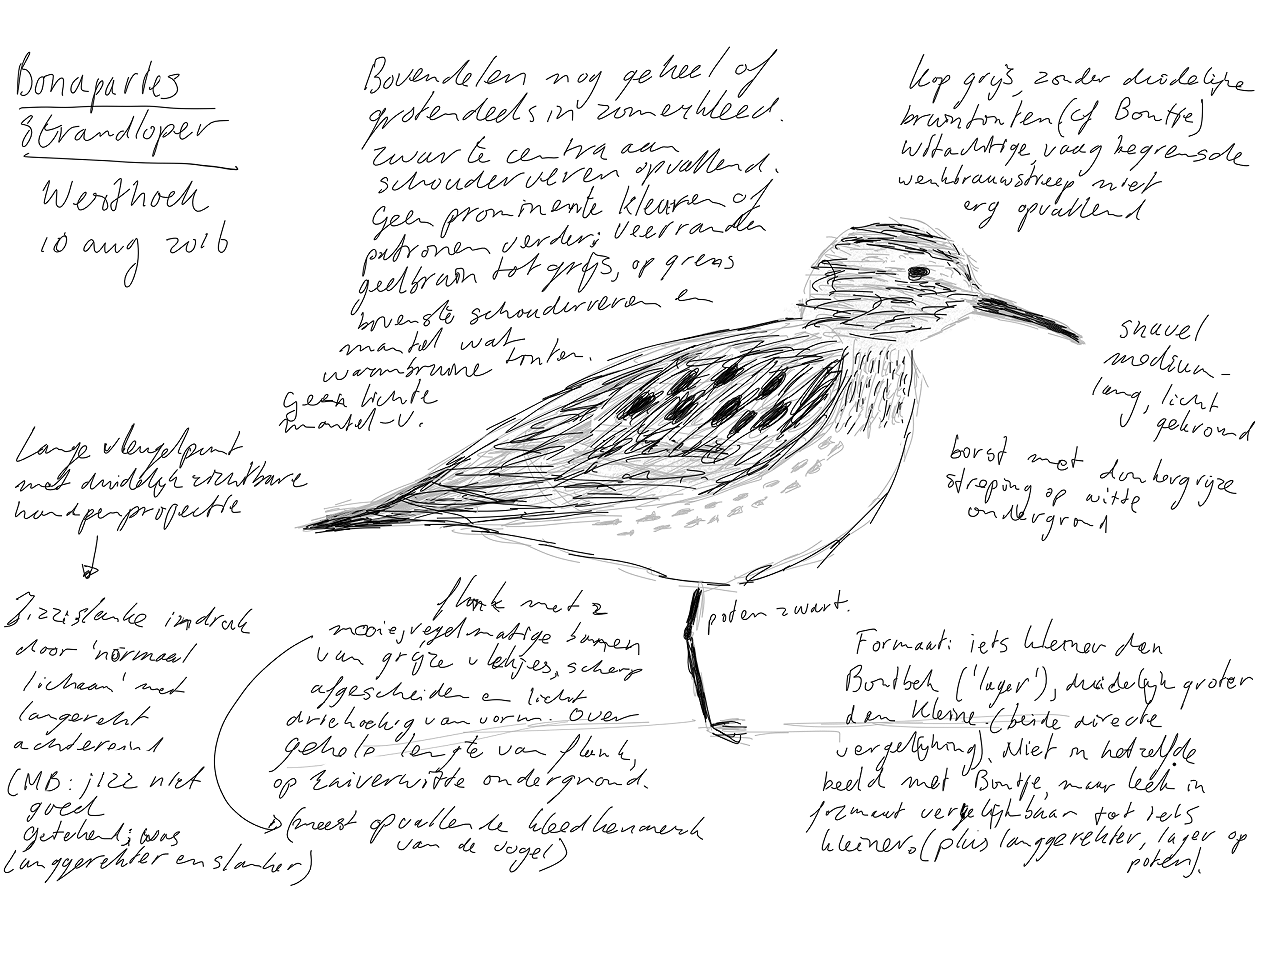 Bonapartes
Strandloper
Westhoek
10 aug 2016
Bovendelen nog geheel of
grotendeels in zomerkleed.
Zwarte centra aan
schouderveren opvallend.
Geen prominente kleuren of
patronen verder; veerranden
geelbruin tot grijs, op grens
bovenste schouderveren en
mantel wat
warmbruine tonten.
Geen lichte
mantel-V.
Kop grijs, zonder duidelijke
bruintonten (cf Bontje)
witachtige, vaag begrensde
wenkbrauwstreep niet
erg opvallend
snavel
medium-
lang, licht
gekromd
borst met donkergrijze
streping op witte
ondergrond
Lange vleugelpunt
met duidelijk zichtbare
handpenprojectie
Jizz: slanke indruk
door 'normaal
lichaam' met
langgerekt
achtereind
(MB: jizz niet
goed
getekend; was
langgerekter en slanker)
flank met 2
mooie, regelmatige banen
van grijze vlekjes, scherp
afgescheiden en licht
driehoekig van vorm. Over
gehele lengte van flank,
op zuiverwitte ondergrond.
(meest opvallende kleedkenmerk
van de vogel)
poten zwart.
Formaat: iets kleiner dan
Bontbek ('lager'), duidelijk groter
dan Kleine. (beide directe
vergelijking). Niet in hetzelfde
beeld met Bontje, maar leek in
formaat vergelijkbaar tot iets
kleiner. (plus langgerekter, lager op
poten).